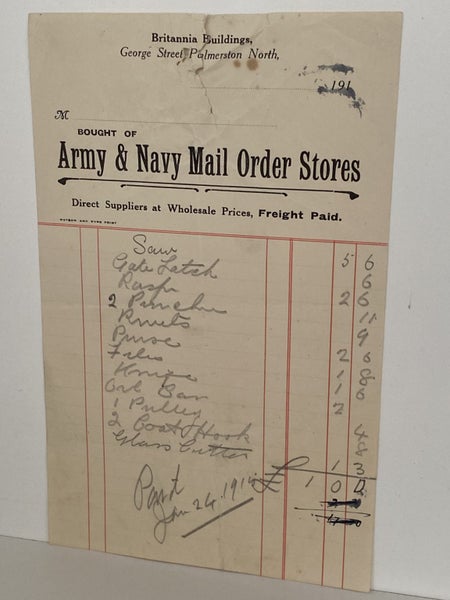 Britannia Buildings,
George Street, Palmerston North,
191
M
BOUGHT OF
Army & Navy Mail Order Stores
Direct Suppliers at Wholesale Prices, Freight Paid.
WATSON AND EYRE PRINT
Saw 5 6
Gate Latch 6
Rasp 2 6
2 11
Rivets 9
Purse
Files 2 6
Knife 1
Oil Can 1 6
1 Pulley 2
2 Coat Hook 4
Glass Cutter 1 3
£ 1 0
Jan 24. 191